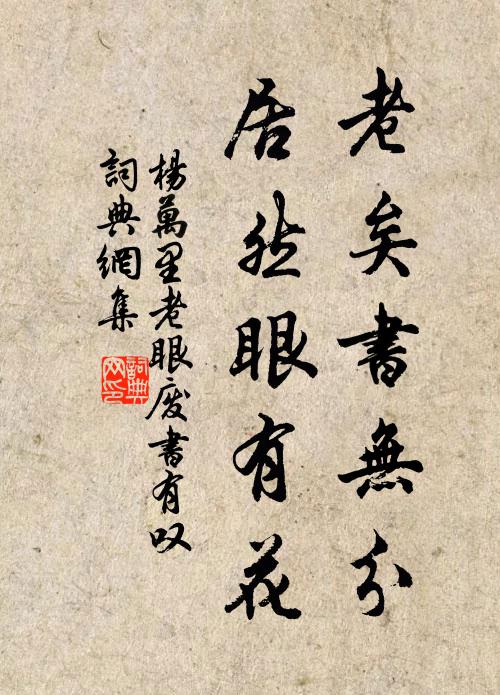 老矣書無分
居然眼有花
楊萬里老眼廢書有叹
詞典網集
詞典
网印